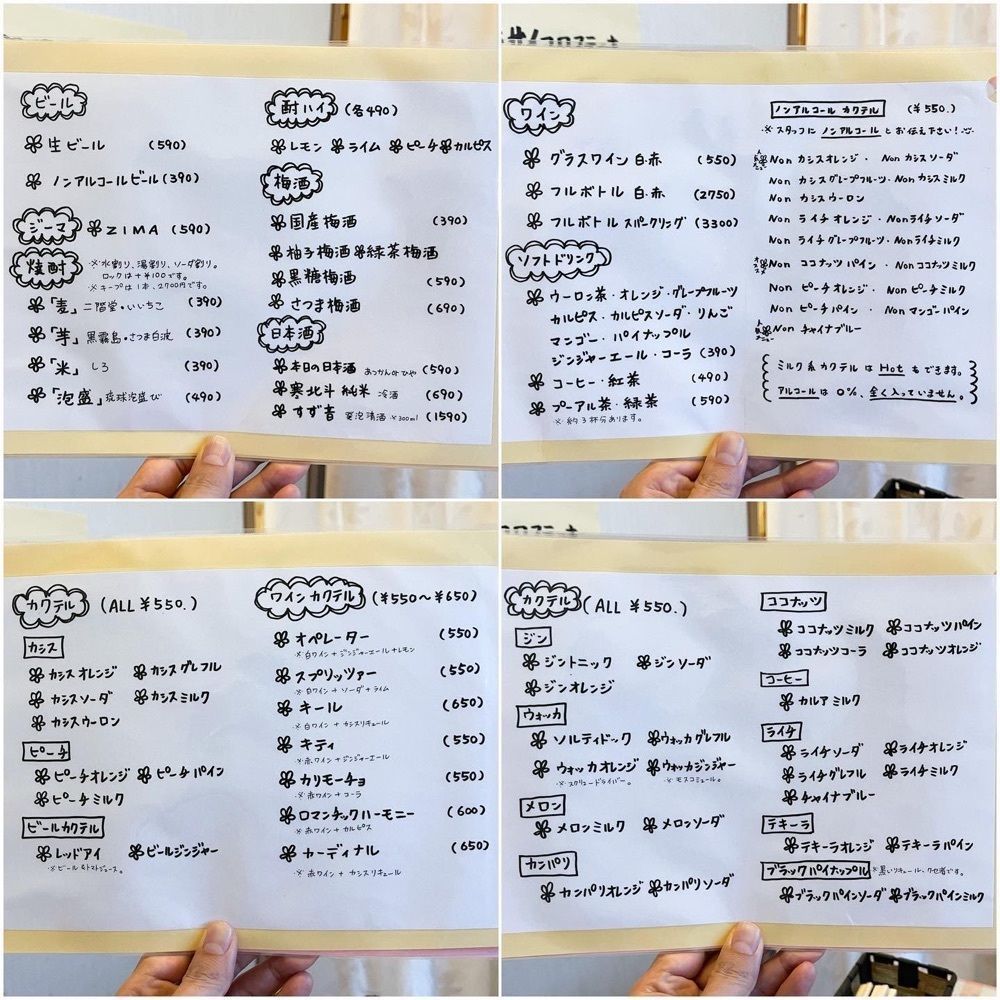 ビール
生ビール (590)
ノンアルコールビール (390)
ジーマ ZIMA (590)
焼酎 ※水割り、湯割り、ソーダ割り。
ロックは+¥100です。
※キープは1本、2700円です。
「麦」二階堂・いいちこ (390)
「芋」黒霧島・さつま白波 (390)
「米」しろ (390)
「泡盛」琉球泡盛び (490)
酎ハイ (各490)
レモン ライム ピーチ カルピス
梅酒
国産梅酒 (390)
柚子梅酒 緑茶梅酒
黒糖梅酒 (590)
さつま梅酒 (690)
日本酒
本日の日本酒 あつかんorひや (590)
寒北斗 純米 冷酒 (690)
すず音 発泡清酒 ※300ml (1590)
ワイン
グラスワイン 白・赤 (550)
フルボトル 白・赤 (2750)
フルボトル スパークリング (3300)
ソフトドリンク
ウーロン茶・オレンジ・グレープフルーツ
カルピス・カルピスソーダ・りんご
マンゴー・パイナップル
ジンジャーエール・コーラ (390)
コーヒー・紅茶 (490)
プーアル茶・緑茶 (590)
※約3杯分あります。
ノンアルコール カクテル (¥550.)
※スタッフに ノンアルコール とお伝え下さい!
Non カシスオレンジ・Non カシスソーダ
Non カシスグレープフルーツ・Non カシスミルク
Non カシスウーロン
Non ライチオレンジ・Non ライチソーダ
Non ライチグレープフルーツ・Non ライチミルク
Non ココナッツパイン・Non ココナッツミルク
Non ピーチオレンジ・Non ピーチミルク
Non ピーチパイン・Non マンゴーパイン
Non チャイナブルー
ミルク系カクテルは Hot もできます。
アルコールは 0%、全く入っていません。
カクテル (ALL ¥550.)
カシス
カシスオレンジ カシスグレフル
カシスソーダ カシスミルク
カシスウーロン
ピーチ
ピーチオレンジ ピーチパイン
ピーチミルク
ビールカクテル
レッドアイ ビールジンジャー
※ビール&トマトジュース。
ワインカクテル (¥550〜¥650)
オペレーター (550)
※白ワイン+ジンジャーエール+レモン
スプリッツァー (550)
※白ワイン+ソーダ+ライム
キール (650)
※白ワイン+カシスリキュール
キティ (550)
※赤ワイン+ジンジャーエール
カリモーチョ (550)
※赤ワイン+コーラ
ロマンチックハーモニー (600)
※赤ワイン+カルピス
カーディナル (650)
※赤ワイン+カシスリキュール
カクテル (ALL ¥550.)
ジン
ジントニック ジンソーダ
ジンオレンジ
ウォッカ
ソルティドック ウォッカグレフル
ウォッカオレンジ ウォッカジンジャー
※スクリュードライバー。 ※モスコミュール。
メロン
メロンミルク メロンソーダ
カンパリ
カンパリオレンジ カンパリソーダ
ココナッツ
ココナッツミルク ココナッツパイン
ココナッツコーラ ココナッツオレンジ
コーヒー
カルアミルク
ライチ
ライチソーダ ライチオレンジ
ライチグレフル ライチミルク
チャイナブルー
テキーラ
テキーラオレンジ テキーラパイン
ブラックパイナップル ※黒いリキュール、クセ者です。
ブラックパインソーダ ブラックパインミルク